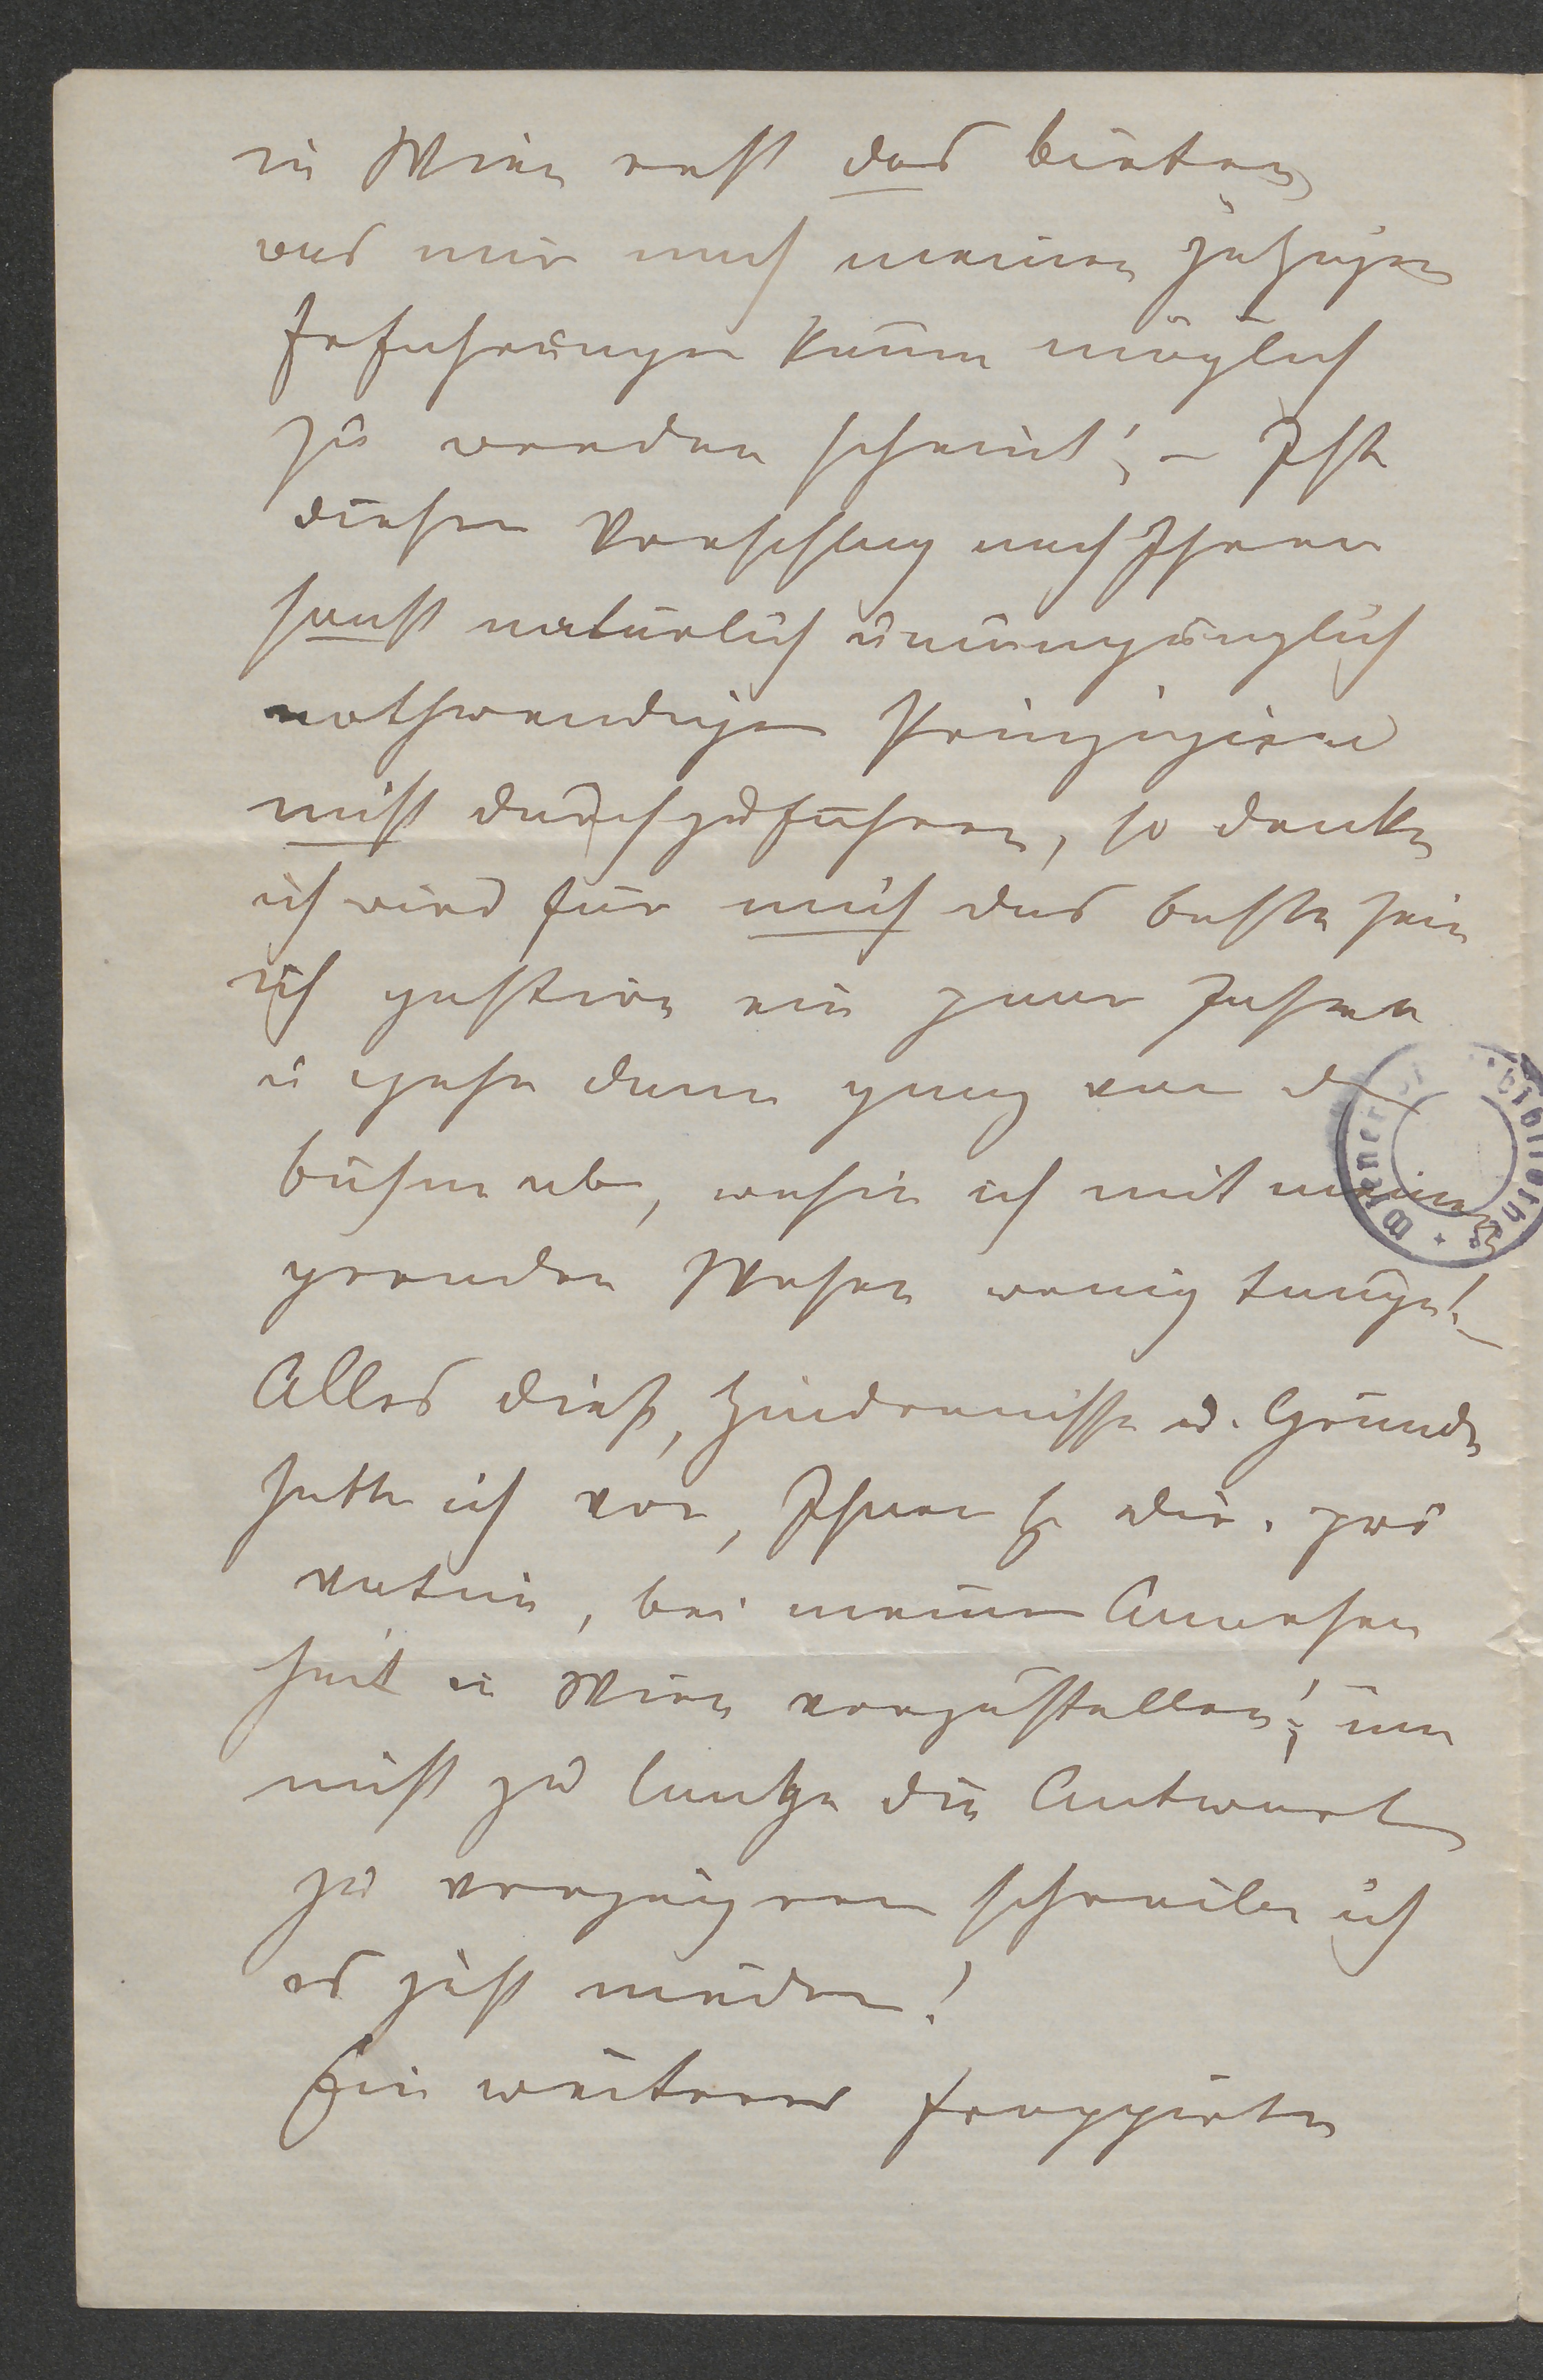 in Wien erst das bieten
was mir nach meinen jetzigen
Erfahrungen kaum möglich
zu werden scheint! – Ist
dieser Vorschlag nach Ihren
sonst natürlich unumgänglich
nothwendigen Prinzipien
nicht durchzuführen, so denke
ich wird für mich das beste sein
ich gastire ein paar Jahre
u gehe dann ganz von d
bühne ab, wohin ich mit meinem
geraden Wesen wenig tauge!
Alles dieß, Hindernisse u. Gründe
hatte ich vor, Ihnen H Dir. pri
vatim, bei meiner Anwesen
heit in Wien vorzustellen! um
nicht zu lange die Antwort
zu verzögern schreibe ich
es jetzt nieder!
Ein weiteres frappirte
Wiener bibliothek